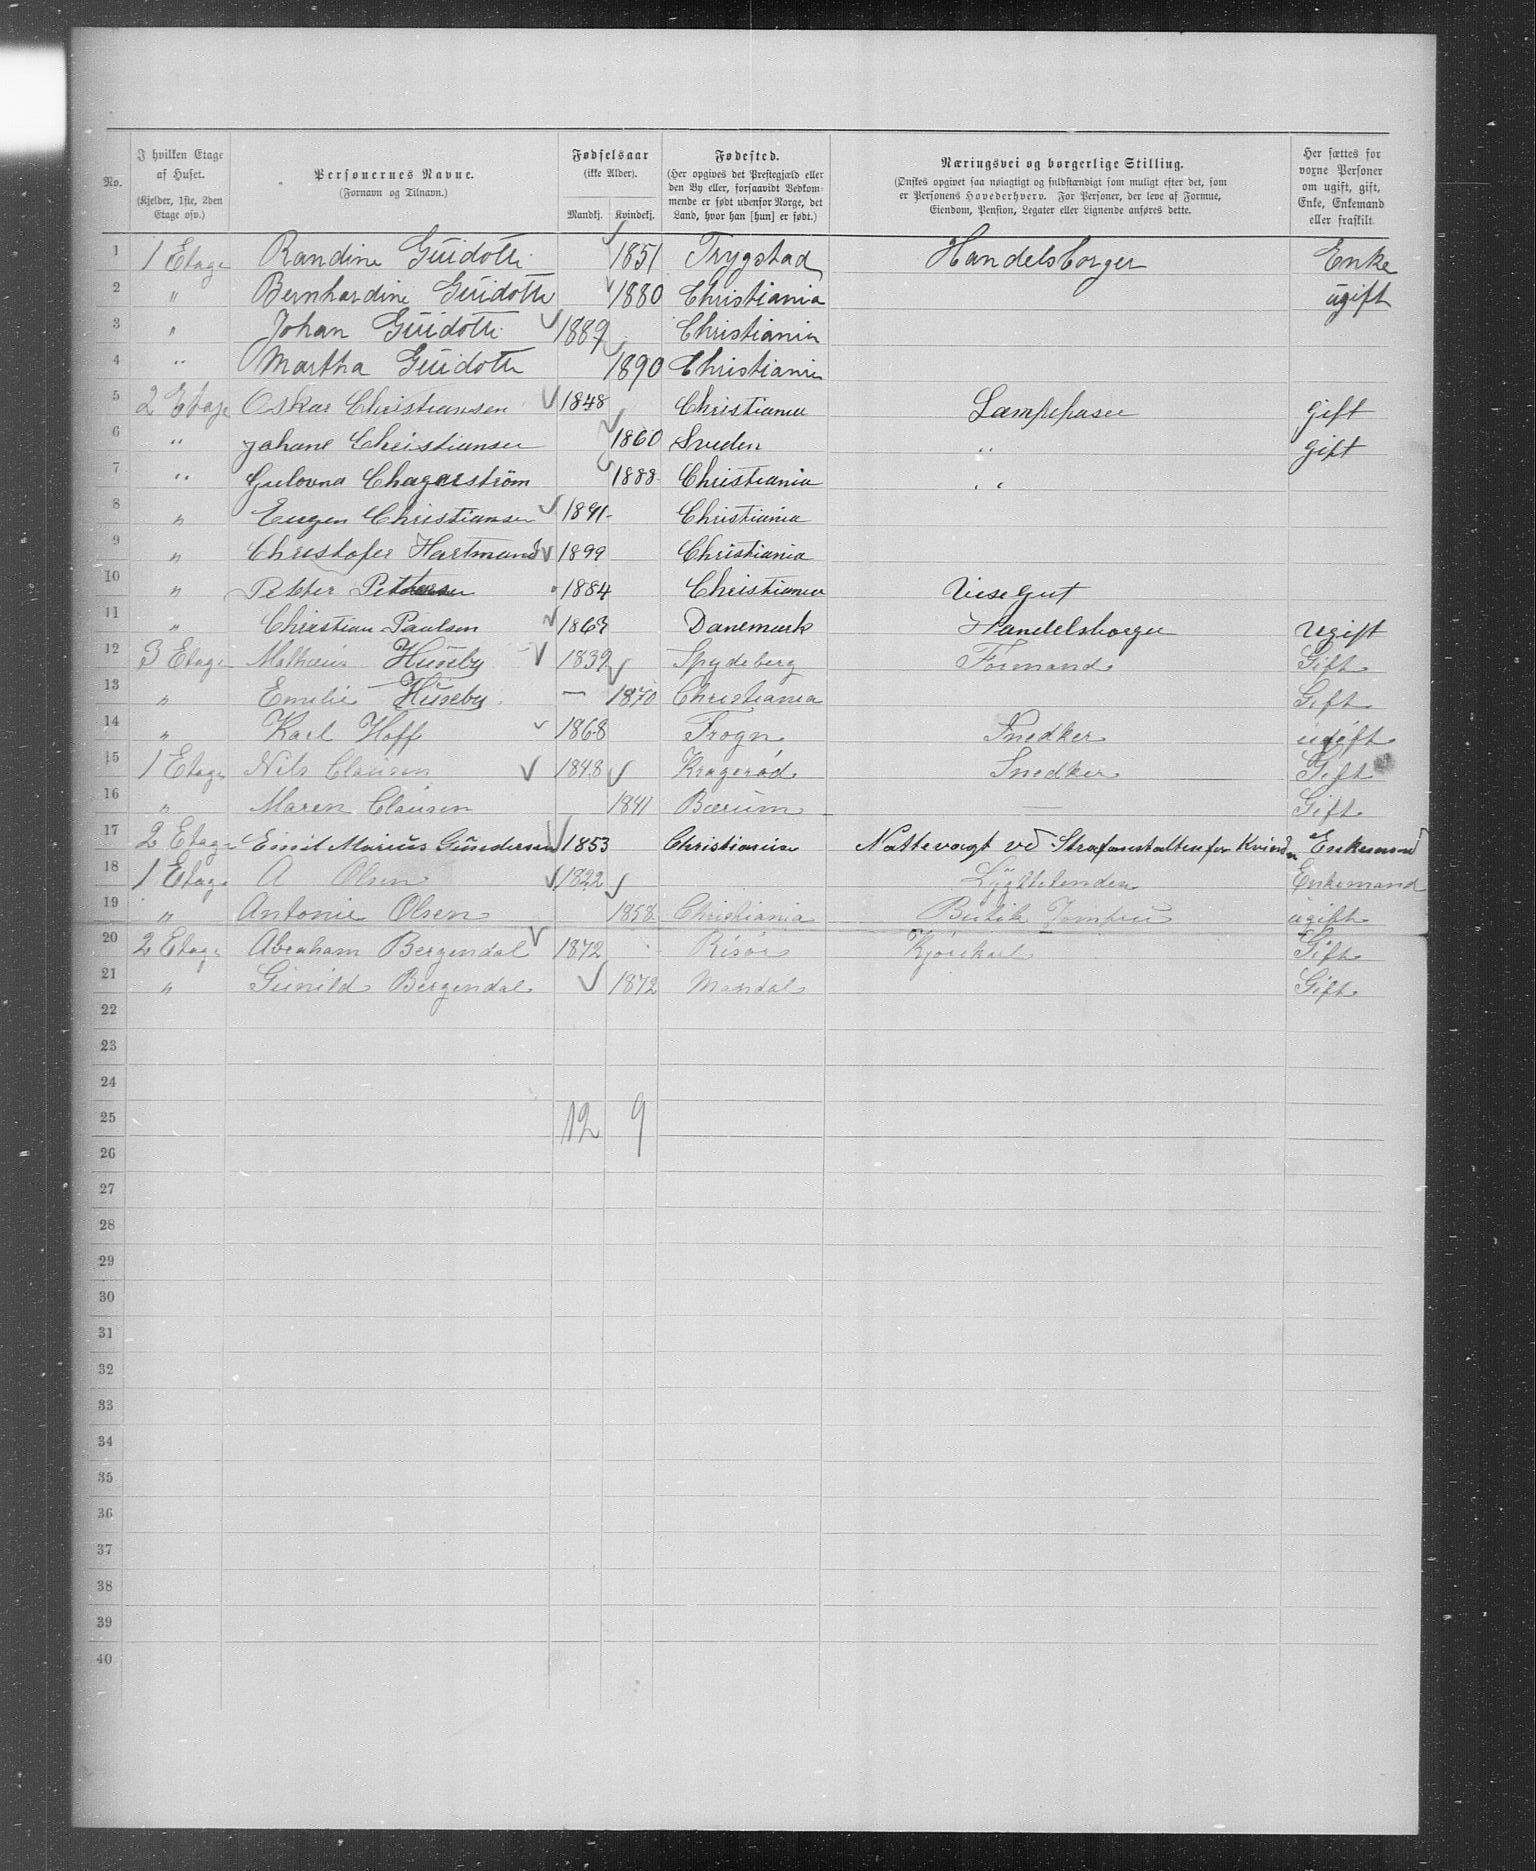 No. | I hvilken Etage af Huset. (Kjelder, 1ste, 2den Etage osv.) | Personernes Navne. (Fornavn og Tilnavn.) | Fødselsaar (ikke Alder). Mandkj. Kvindekj. | Fødested. (Her opgives det Prestegjæld eller den By eller, forsaavidt Vedkommende er født udenfor Norge, det Land, hvor han [hun] er født.) | Næringsvei og borgerlige Stilling. (Ønskes opgivet saa nøiagtigt og fuldstændigt som muligt efter det, som er Personens Hovederhverv. For Personer, der leve af Formue, Eiendom, Pension, Legater eller Lignende anføres dette.) | Her sættes for voxne Personer om ugift, gift, Enke, Enkemand eller fraskilt.
1 1 Etage Randine Guidotti 1851 Trygstad Handelsborger Enke
2 " Bernhardine Guidotti 1880 Christiania ugift
3 " Johan Guidotti 1889 Christiania
4 " Martha Guidotti 1890 Christiania
5 2 Etage Oskar Christiansen 1848 Christiania Lampepasser gift
6 " Johane Christiansen 1860 Sveden " gift
7 " Gulovna Chagerstrøm 1888 Christiania "
8 " Eugen Christiansen 1891 Christiania
9 " Christofer Hartmand 1899 Christiania
10 " Petter Pettersen 1884 Christiania Visegut
11 " Christian Paulsen 1863 Danemark Handelsborger Ugift
12 3 Etage Mathæus Huseby 1839 Spydeberg Formand Gift
13 " Emilie Huseby — 1870 Christiania Gift
14 " Karl Hoff 1868 Frogn Snedker ugift
15 1 Etage Nils Clausen 1848 Kragerød Snedker Gift
16 " Maren Clausen 1841 Bærum — Gift
17 2 Etage Emil Marius Gundersen 1853 Christiania Nattevagt ved Strafanstalten for Kvinder Enkemand
18 1 Etage A Olsen 1822 Lygtetender Enkemand
19 " Antonie Olsen 1858 Christiania Butik Jomfru ugift
20 2 Etage Abraham Bergendal 1872 Risør Kjørekarl Gift
21 " Gunild Bergendal 1872 Mandal Gift
22
23
24
25 12 9
26
27
28
29
30
31
32
33
34
35
36
37
38
39
40